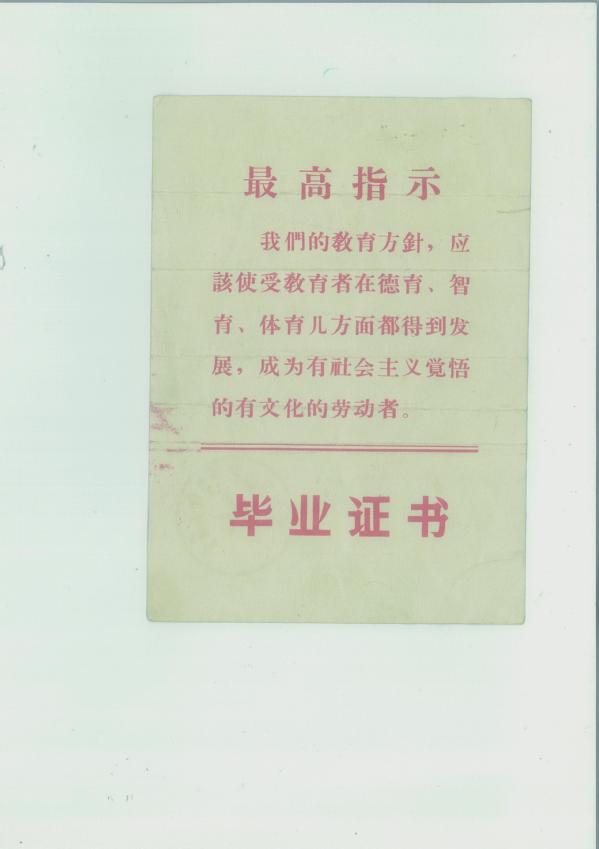 最高指示
我們的教育方針，应
該使受教育者在德育、智
育、体育几方面都得到发
展，成为有社会主义覚悟
的有文化的劳动者。
毕业证书